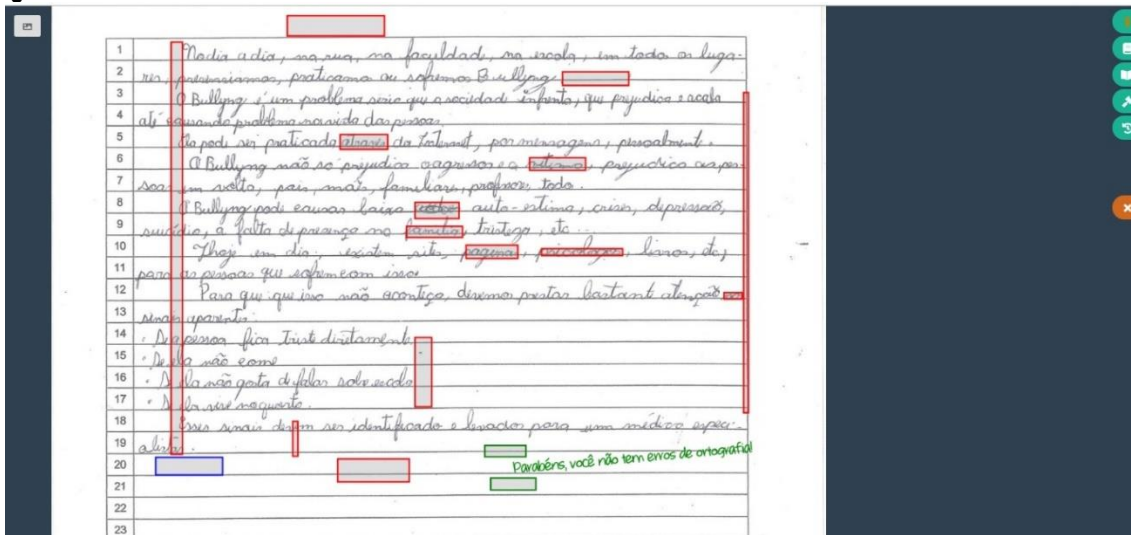 1 No dia a dia, na rua, na faculdade, na escola, em todo os luga-
2 res, presenciamos, praticamo ou sofremos Bullyng
3 O Bullyng é um problema serio que a sociedade enfrenta, que prejudica e acaba
4 até causando problema na vida das pessoas.
5 Ela pode ser praticada através da Internet, por mensagens, pessoalmente.
6 O Bullyng não só prejudica o agressor e a vitima, prejudica as pes-
7 soas em volta, pais, mães, familiares, profesores, todo.
8 O Bullyng pode causar baixa auto-estima, crises, depressão,
9 suicídio, a falta de presença na familia, tristeza, etc...
10 Thoje em dia, existem sites, pagina, psicologos, livros, etc,
11 para as pessoas que sofrem com isso
12 Para que que isso não aconteça, devemos prestar bastante atenção nos
13 sinais aparentes:
14 · Se a pessoa fica triste diretamente
15 · Se ela não come
16 · Se ela não gosta de falar sobre escola
17 · Se ela vive no quarto.
18 Esses sinais devem ser identificado e levados para um médico especi-
19 alista.
Parabéns, você não tem erros de ortografia!
20
21
22
23